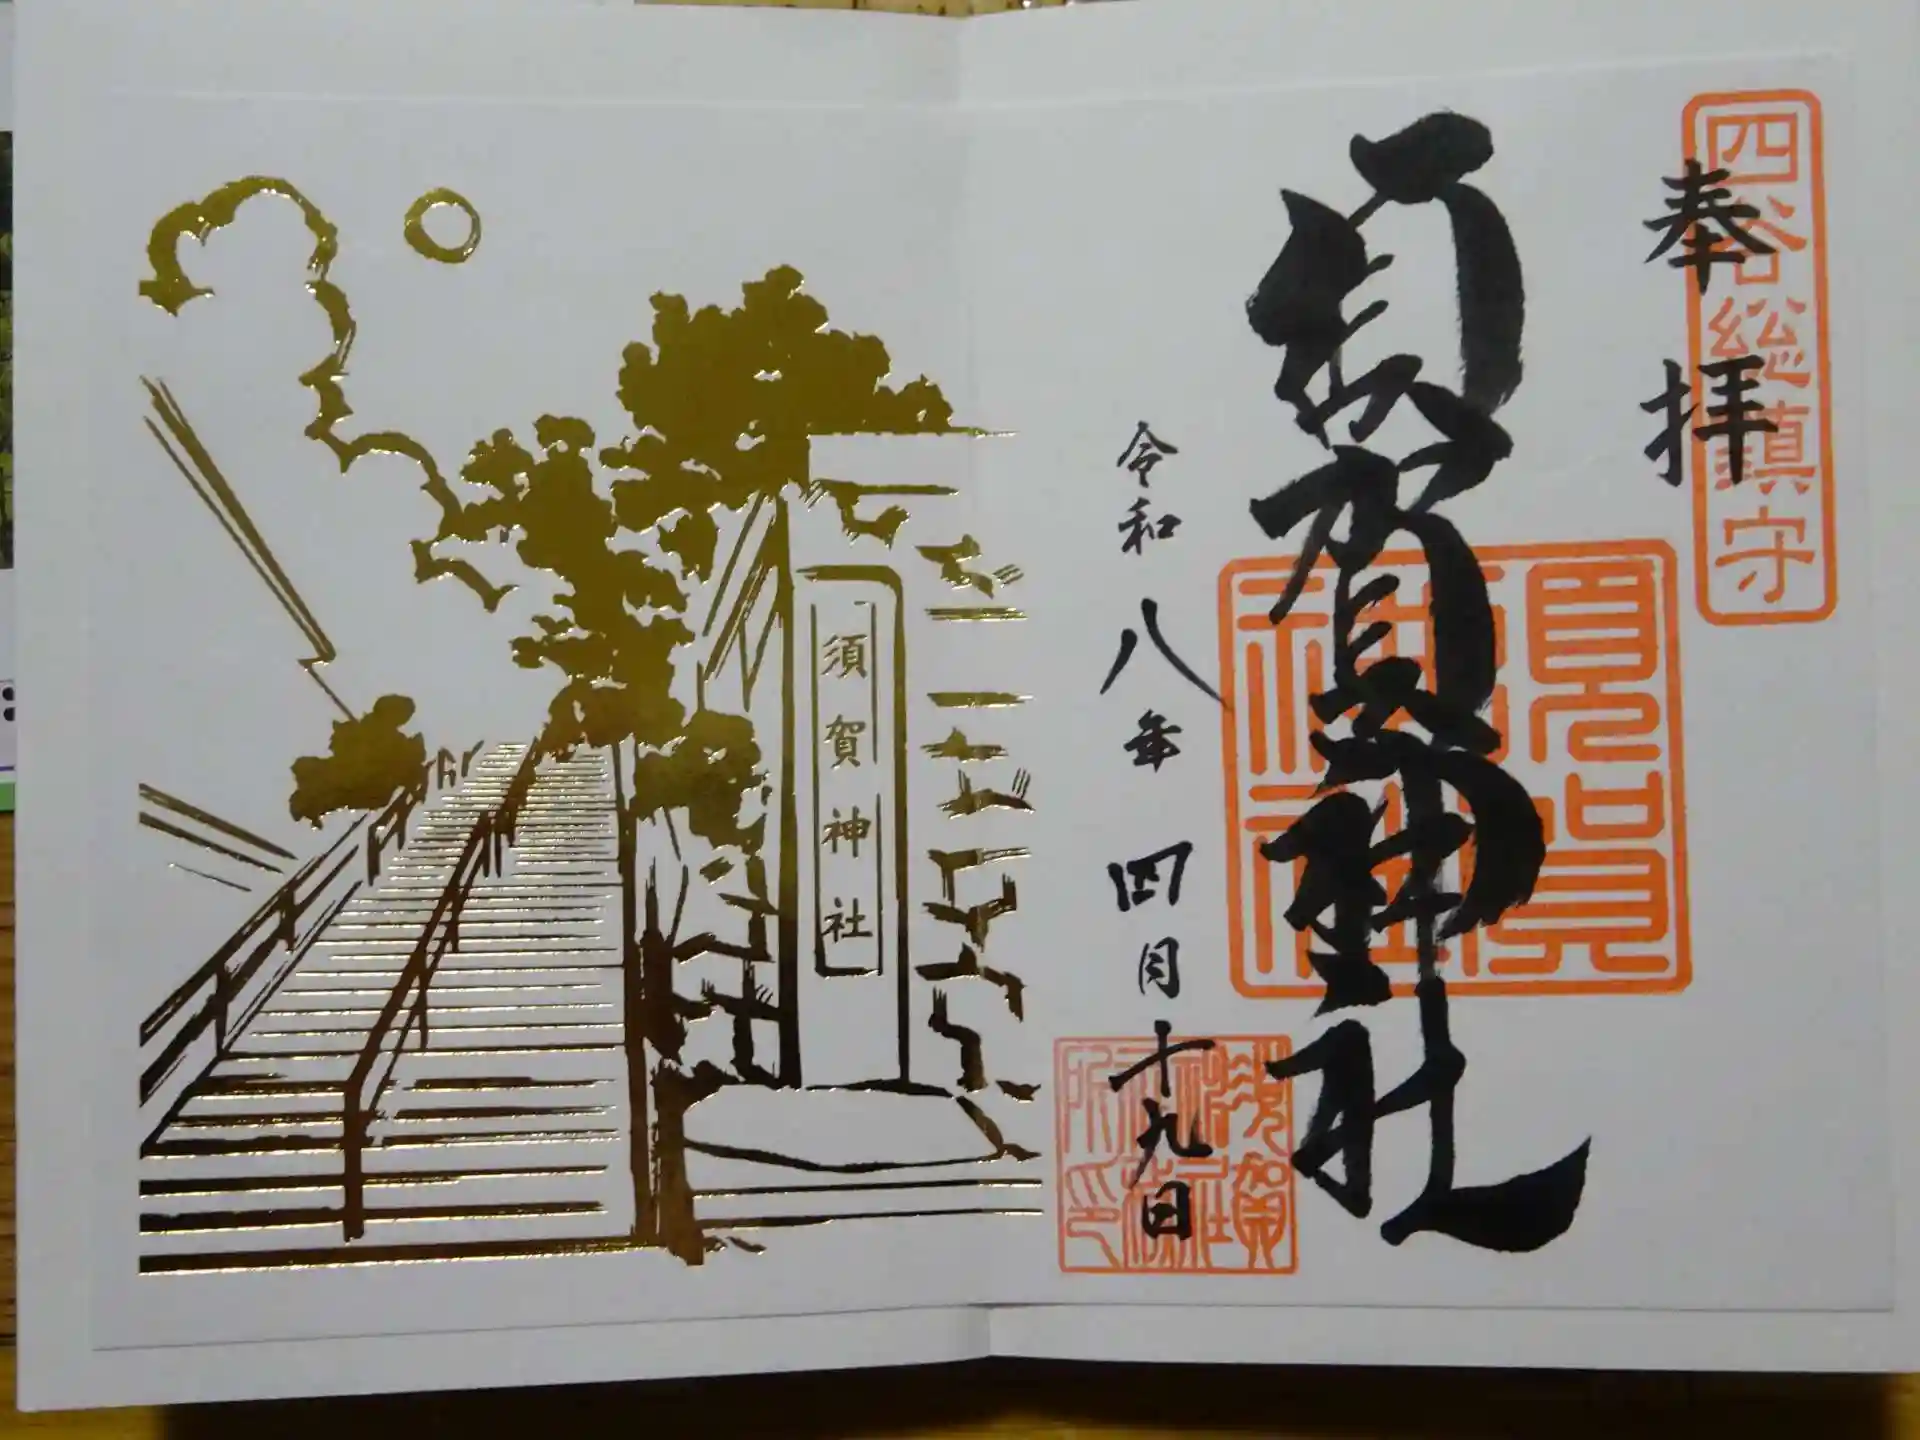 四谷総鎮守
奉拝
須賀神社
須賀神社
令和八年 四月十九日
須賀神社